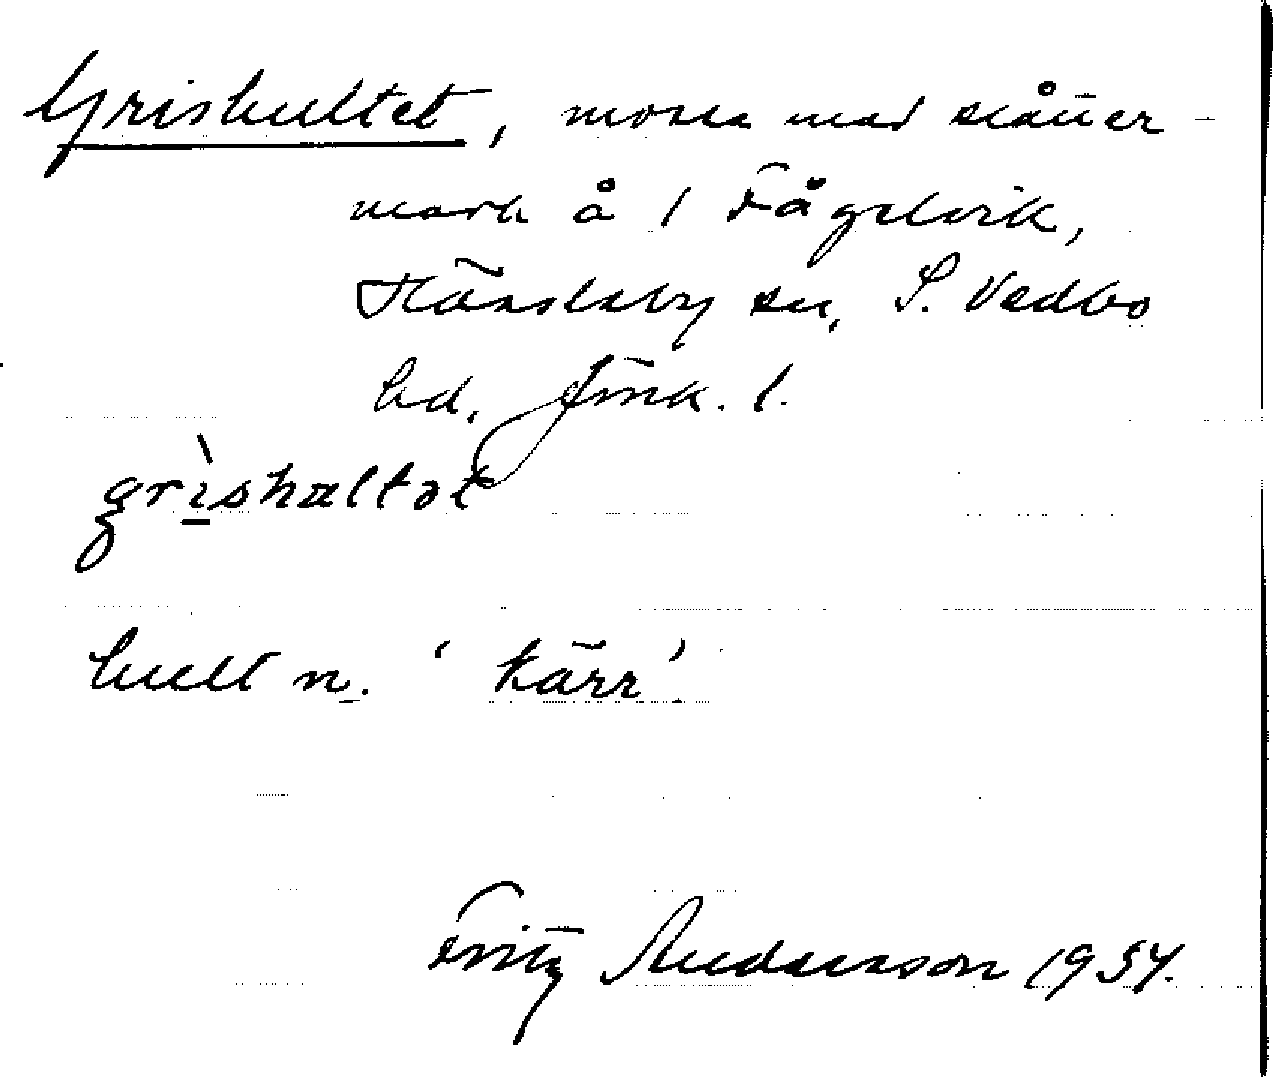 Grishultet, mosse med slåtter-
mark å 1 Fågelvik,
Hässleby sn, S. Vedbo
hd, Jönk. l.
grìshæltət
hult n. 'kärr'.
Fritz Andersson 1934.